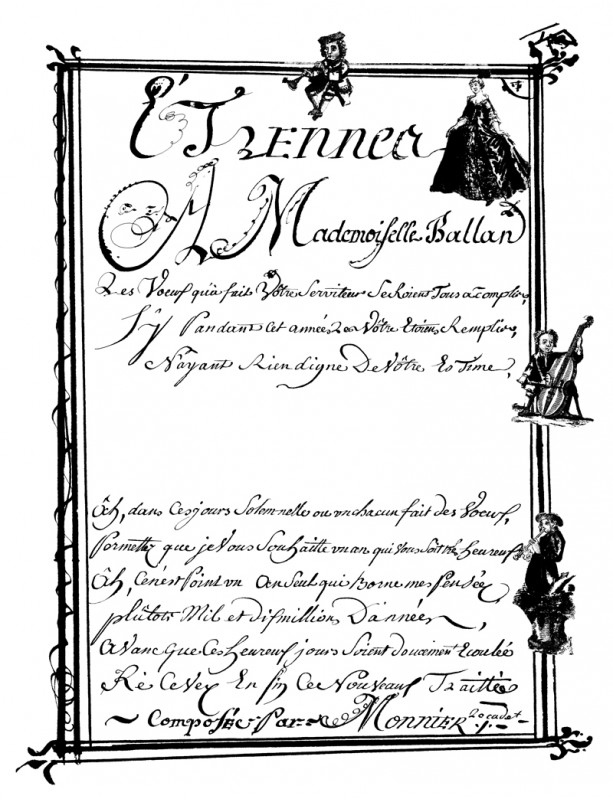 Étrennea
A Mademoiselle Balland
Les Voeux qu'a fait Vôtre Serviteur Seroient Tous acomplis,
Sy Pandant cet année Remplis,
N'ayant Rien digne De Vôtre Estime,
Ôh, dans Ces jours Solemnelle ou un chacun fait des Voeux,
Permettez que je Vous Souhaitte un an qui Vous Soit tres heureux
Ôh, Ce n'est Point un an Seul qui Borne mes Pensée,
plûtots Mil et dix millions D'année,
avans que Ces heureux jours Soient doucement Ecoulée
Re Cevez En fin Ce Nouveaux Traittée
Composée Par Monnier 2o cadet.